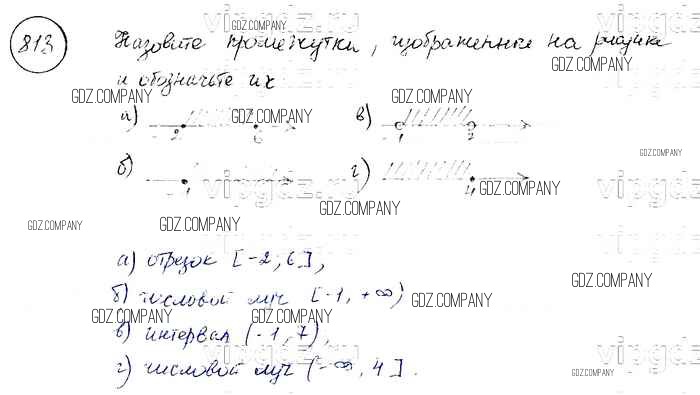 813
Назовите промежутки, изображенные на рисунке
и обозначьте их
GDZ.COMPANY
а) -2 6
в) -1 7
б) -1
г) 4
vipgdz.ru
а) отрезок [-2, 6],
б) числовой луч [-1, +∞)
в) интервал (-1, 7),
г) числовой луч (-∞, 4].